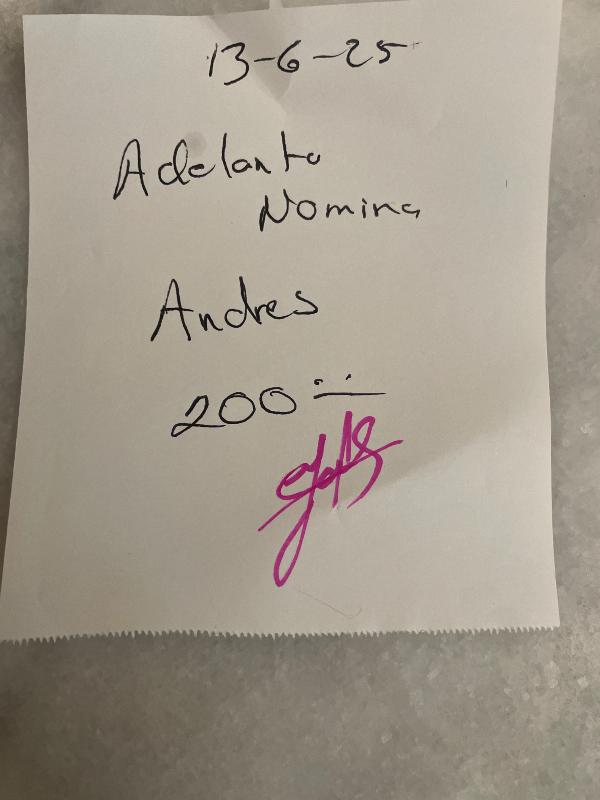 13-6-25
Adelanto
Nomina
Andres
200